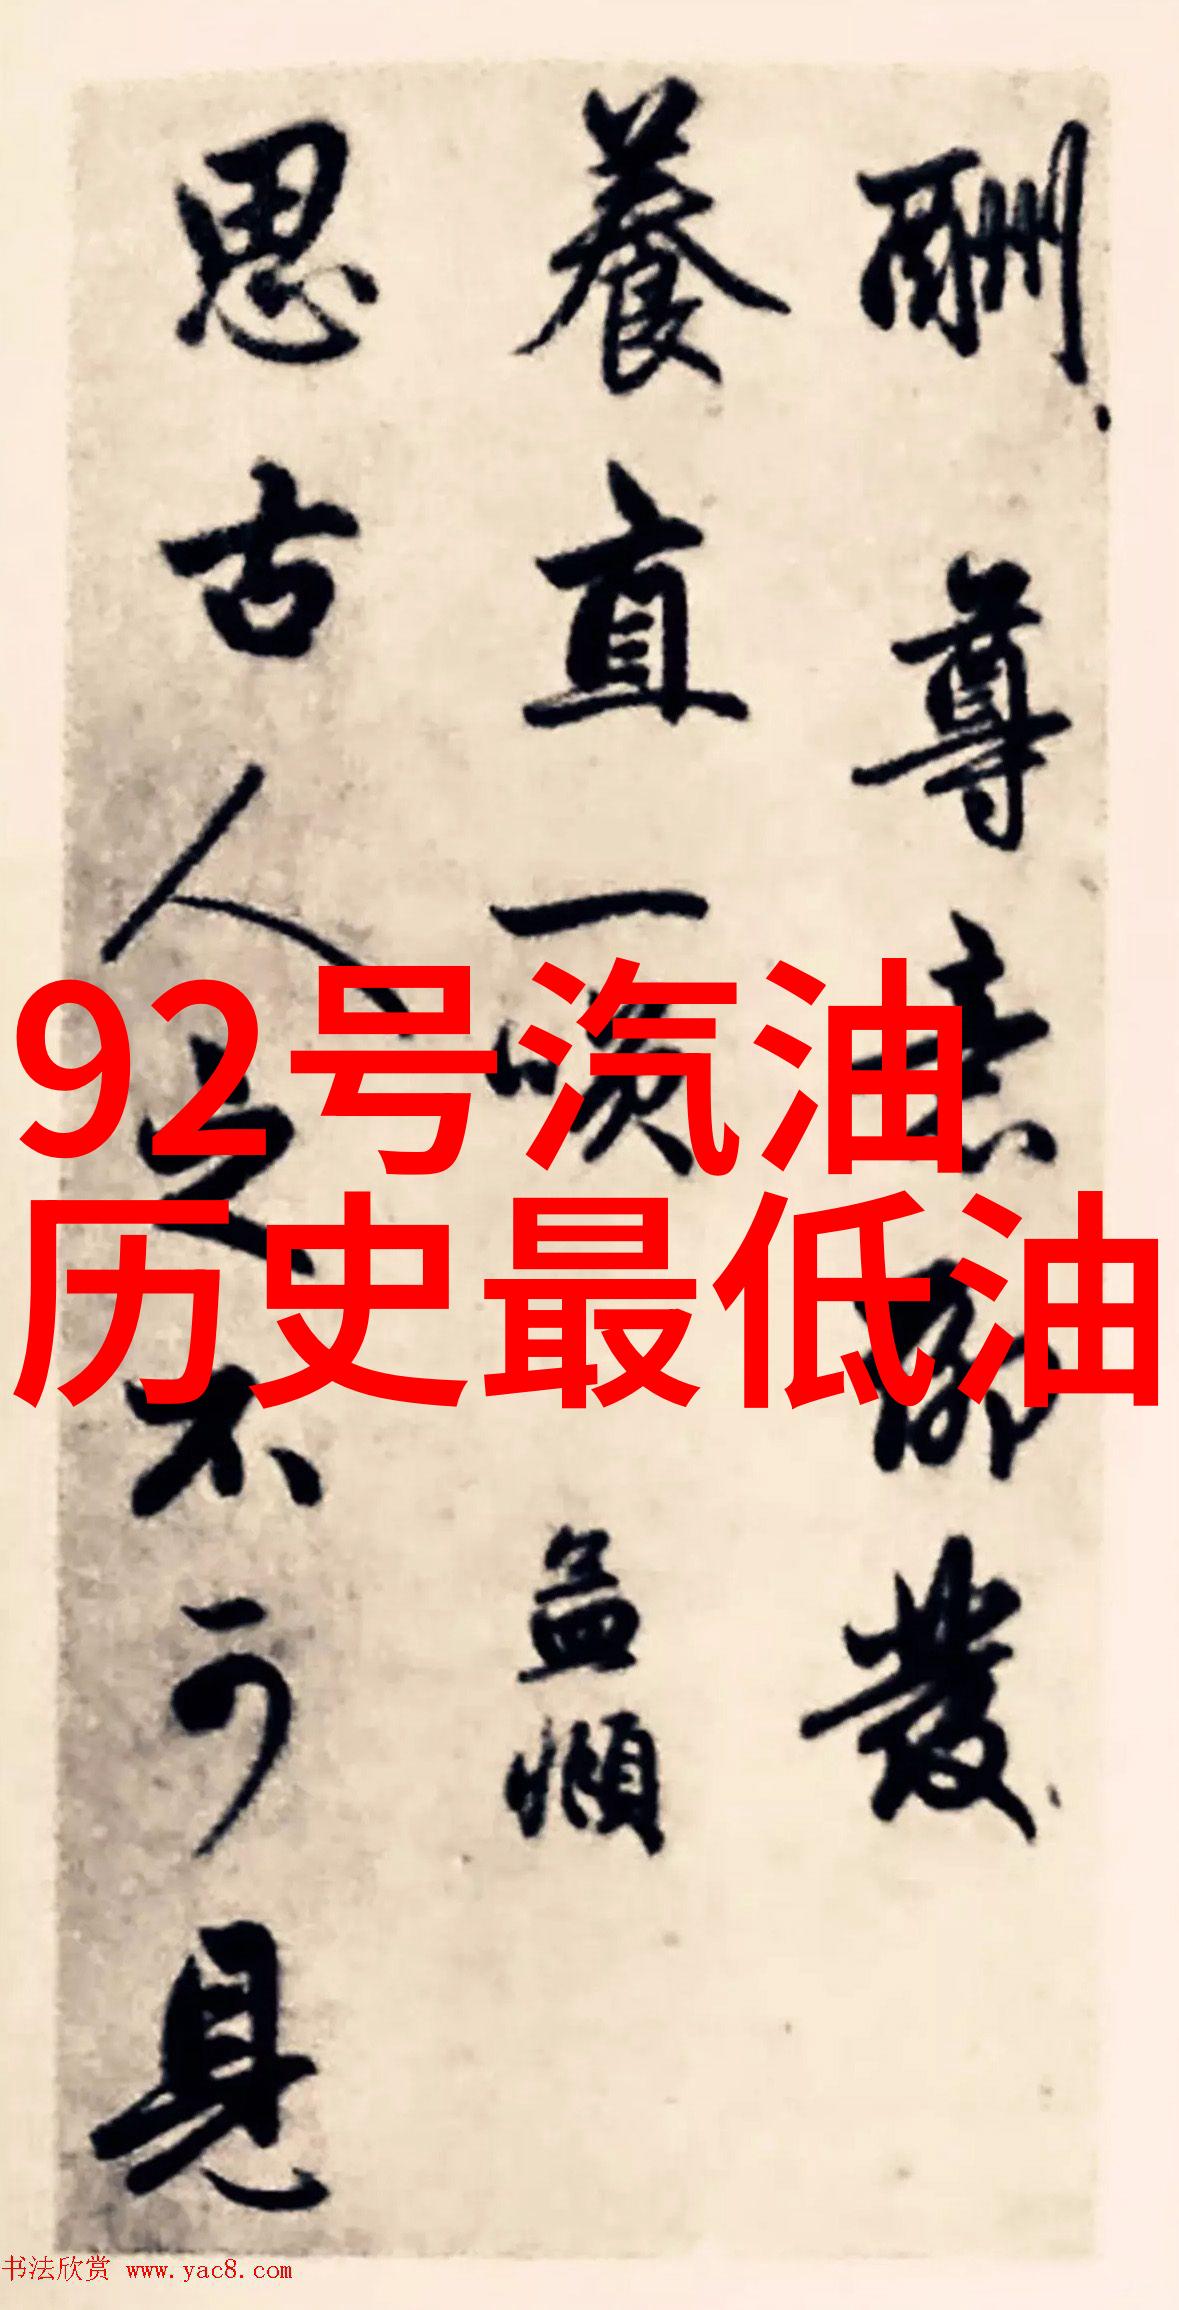 酬尊意聊發
養直一咲孟頫
思古人之不可見
92号汽油
历史最低油
书法欣赏 www.yac8.com